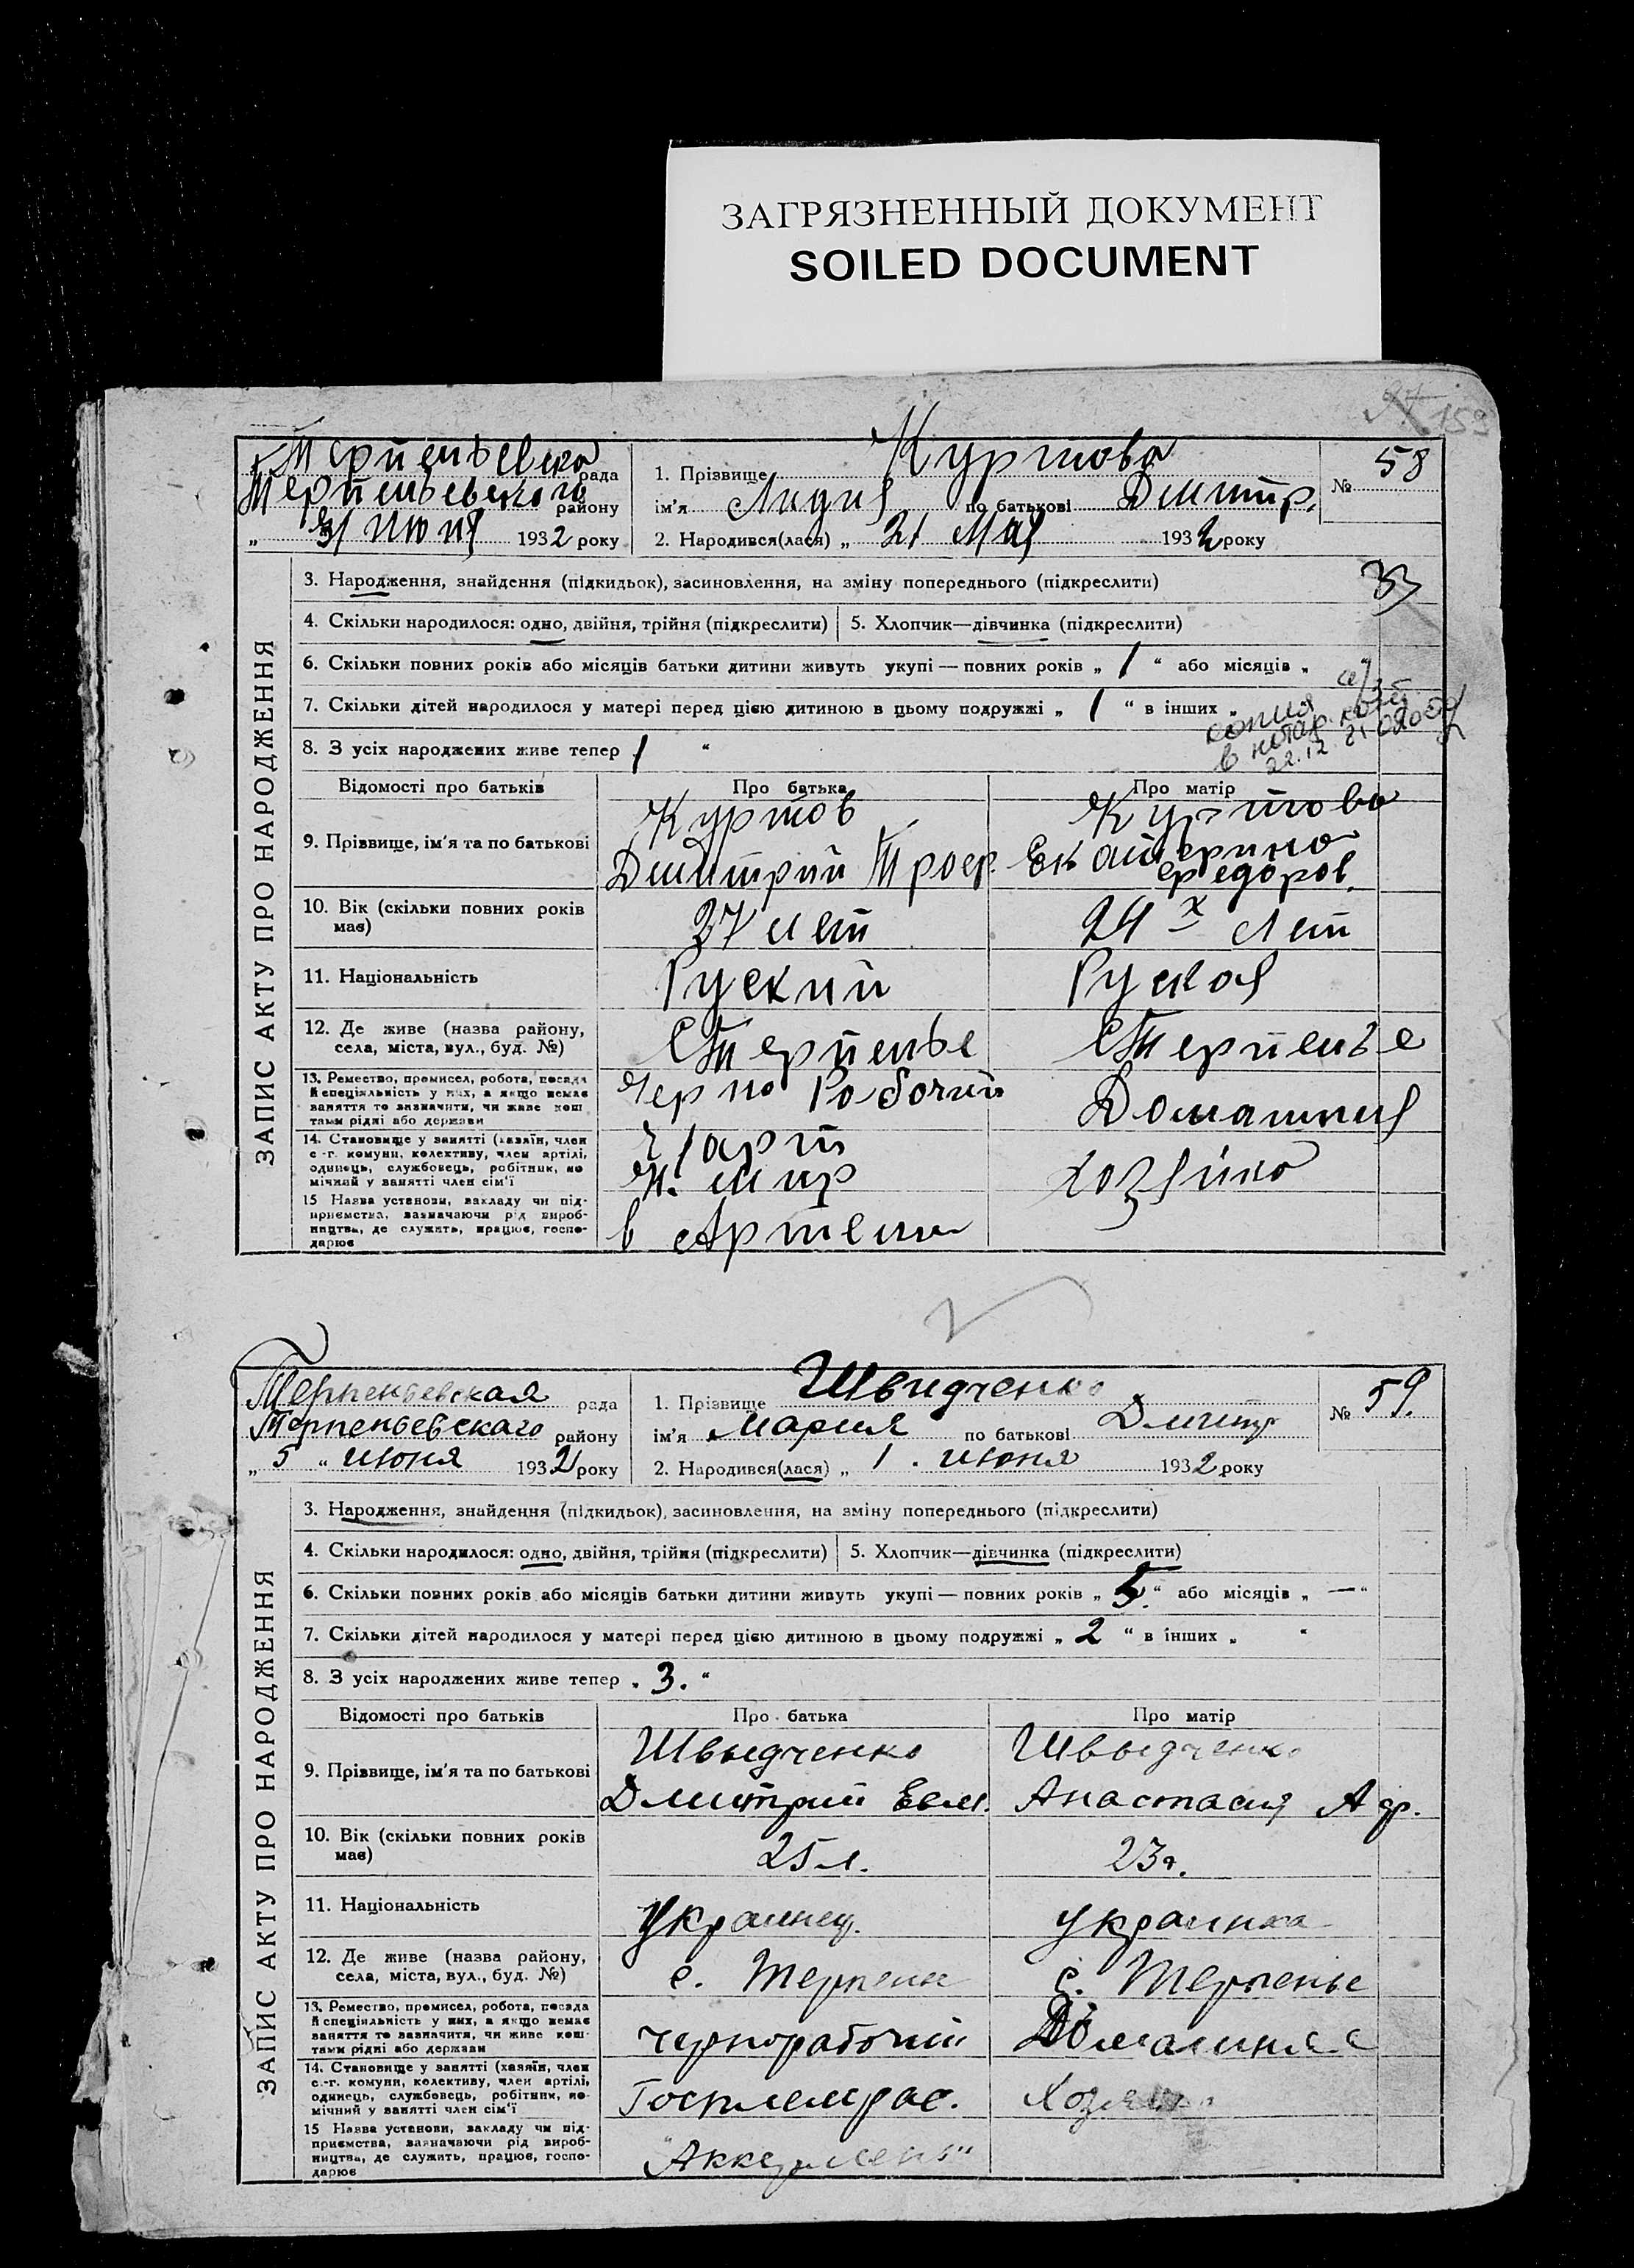 ЗАГРЯЗНЕННЫЙ ДОКУМЕНТ
SOILED DOCUMENT
159
рада
Терпеньевского району
1932 року
1. Прізвище Куртова
ім'я Лидия по батькові Дмитр.
2. Народився(лася) „ 21 Мая 1932 року
№ 58
33
ЗАПИС АКТУ ПРО НАРОДЖЕННЯ
3. Народження, знайдення (підкидьок), засиновлення, на зміну попереднього (підкреслити)
4. Скільки народилося: одно, двійня, трійня (підкреслити) 5. Хлопчик—дівчинка (підкреслити)
6. Скільки повних років або місяців батьки дитини живуть укупі — повних років „ 1 “ або місяців „
7. Скільки дітей народилося у матері перед цією дитиною в цьому подружжі „ 1 “ в інших „
копия
в нотар.
22.12.81
8. З усіх народжених живе тепер 1 “
Відомості про батьків Про батька Про матір
9. Прізвище, ім'я та по батькові
Куртов Куртова
Дмитрий Екатерина
Федоров.
10. Вік (скільки повних років має) 37 лет 24х лет
11. Національність Руский Руская
12. Де живе (назва району, села, міста, вул., буд. №) С Терпенье С Терпенье
13. Ремество, промисел, робота, посада й спеціяльність у них, а якщо немає заняття то зазначити, чи живе коштами рідні або держави
Черно Робочий Домашния
14. Становище у занятті (хазяїн, член с.-г. комуни, колективу, член артілі, одинець, службовець, робітник, помічний у занятті член сім'ї
хозяйка
15 Назва установи, закладу чи підприємства, зазначаючи рід виробництва, де служить, працює, господарює
в Артели
Терпеньевская рада
Терпеньевскаго району
„ 5 “ июня 1932 року
1. Прізвище Швидченко
ім'я Мария по батькові Дмитр
2. Народився(лася) „ 1. июня 1932 року
№ 59.
ЗАПИС АКТУ ПРО НАРОДЖЕННЯ
3. Народження, знайдення (підкидьок), засиновлення, на зміну попереднього (підкреслити)
4. Скільки народилося: одно, двійня, трійня (підкреслити) 5. Хлопчик—дівчинка (підкреслити)
6. Скільки повних років або місяців батьки дитини живуть укупі — повних років „ 5. “ або місяців „ — “
7. Скільки дітей народилося у матері перед цією дитиною в цьому подружжі „ 2 “ в інших „ “
8. З усіх народжених живе тепер „ 3. “
Відомості про батьків Про батька Про матір
9. Прізвище, ім'я та по батькові
Швыдченко Швыдченко
Дмитрий Евм. Анастасия
10. Вік (скільки повних років має) 25 л. 23 г.
11. Національність Украинец. украинка
12. Де живе (назва району, села, міста, вул., буд. №) с. Терпени с. Терпенье
13. Ремество, промисел, робота, посада й спеціяльність у них, а якщо немає заняття то зазначити, чи живе коштами рідні або держави
чернорабочий Домашняя
14. Становище у занятті (хазяїн, член с.-г. комуни, колективу, член артілі, одинець, службовець, робітник, помічний у занятті член сім'ї
Госплемрас.
15 Назва установи, закладу чи підприємства, зазначаючи рід виробництва, де служить, працює, господарює
"Аккермень"